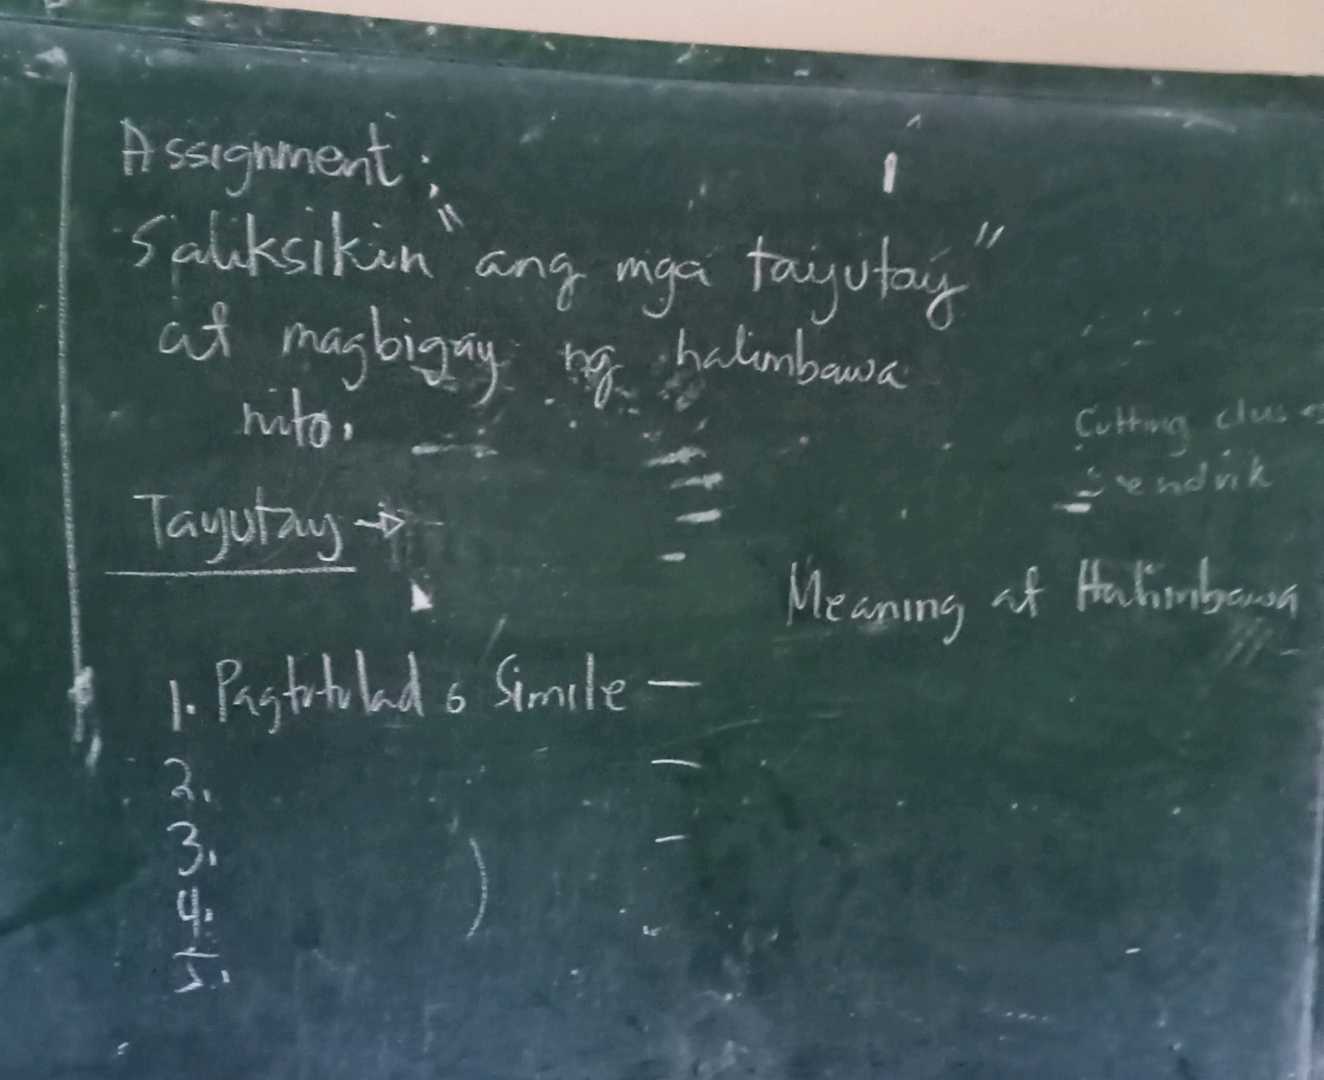 Assignment:
Saliksikin "ang mga tayutay"
at magbigay ng halimbawa
nito.
Cutting
Tayutay →
Meaning at Halimbawa
1. Pagtutulad o Simile —
2. —
3. —
4.
5.